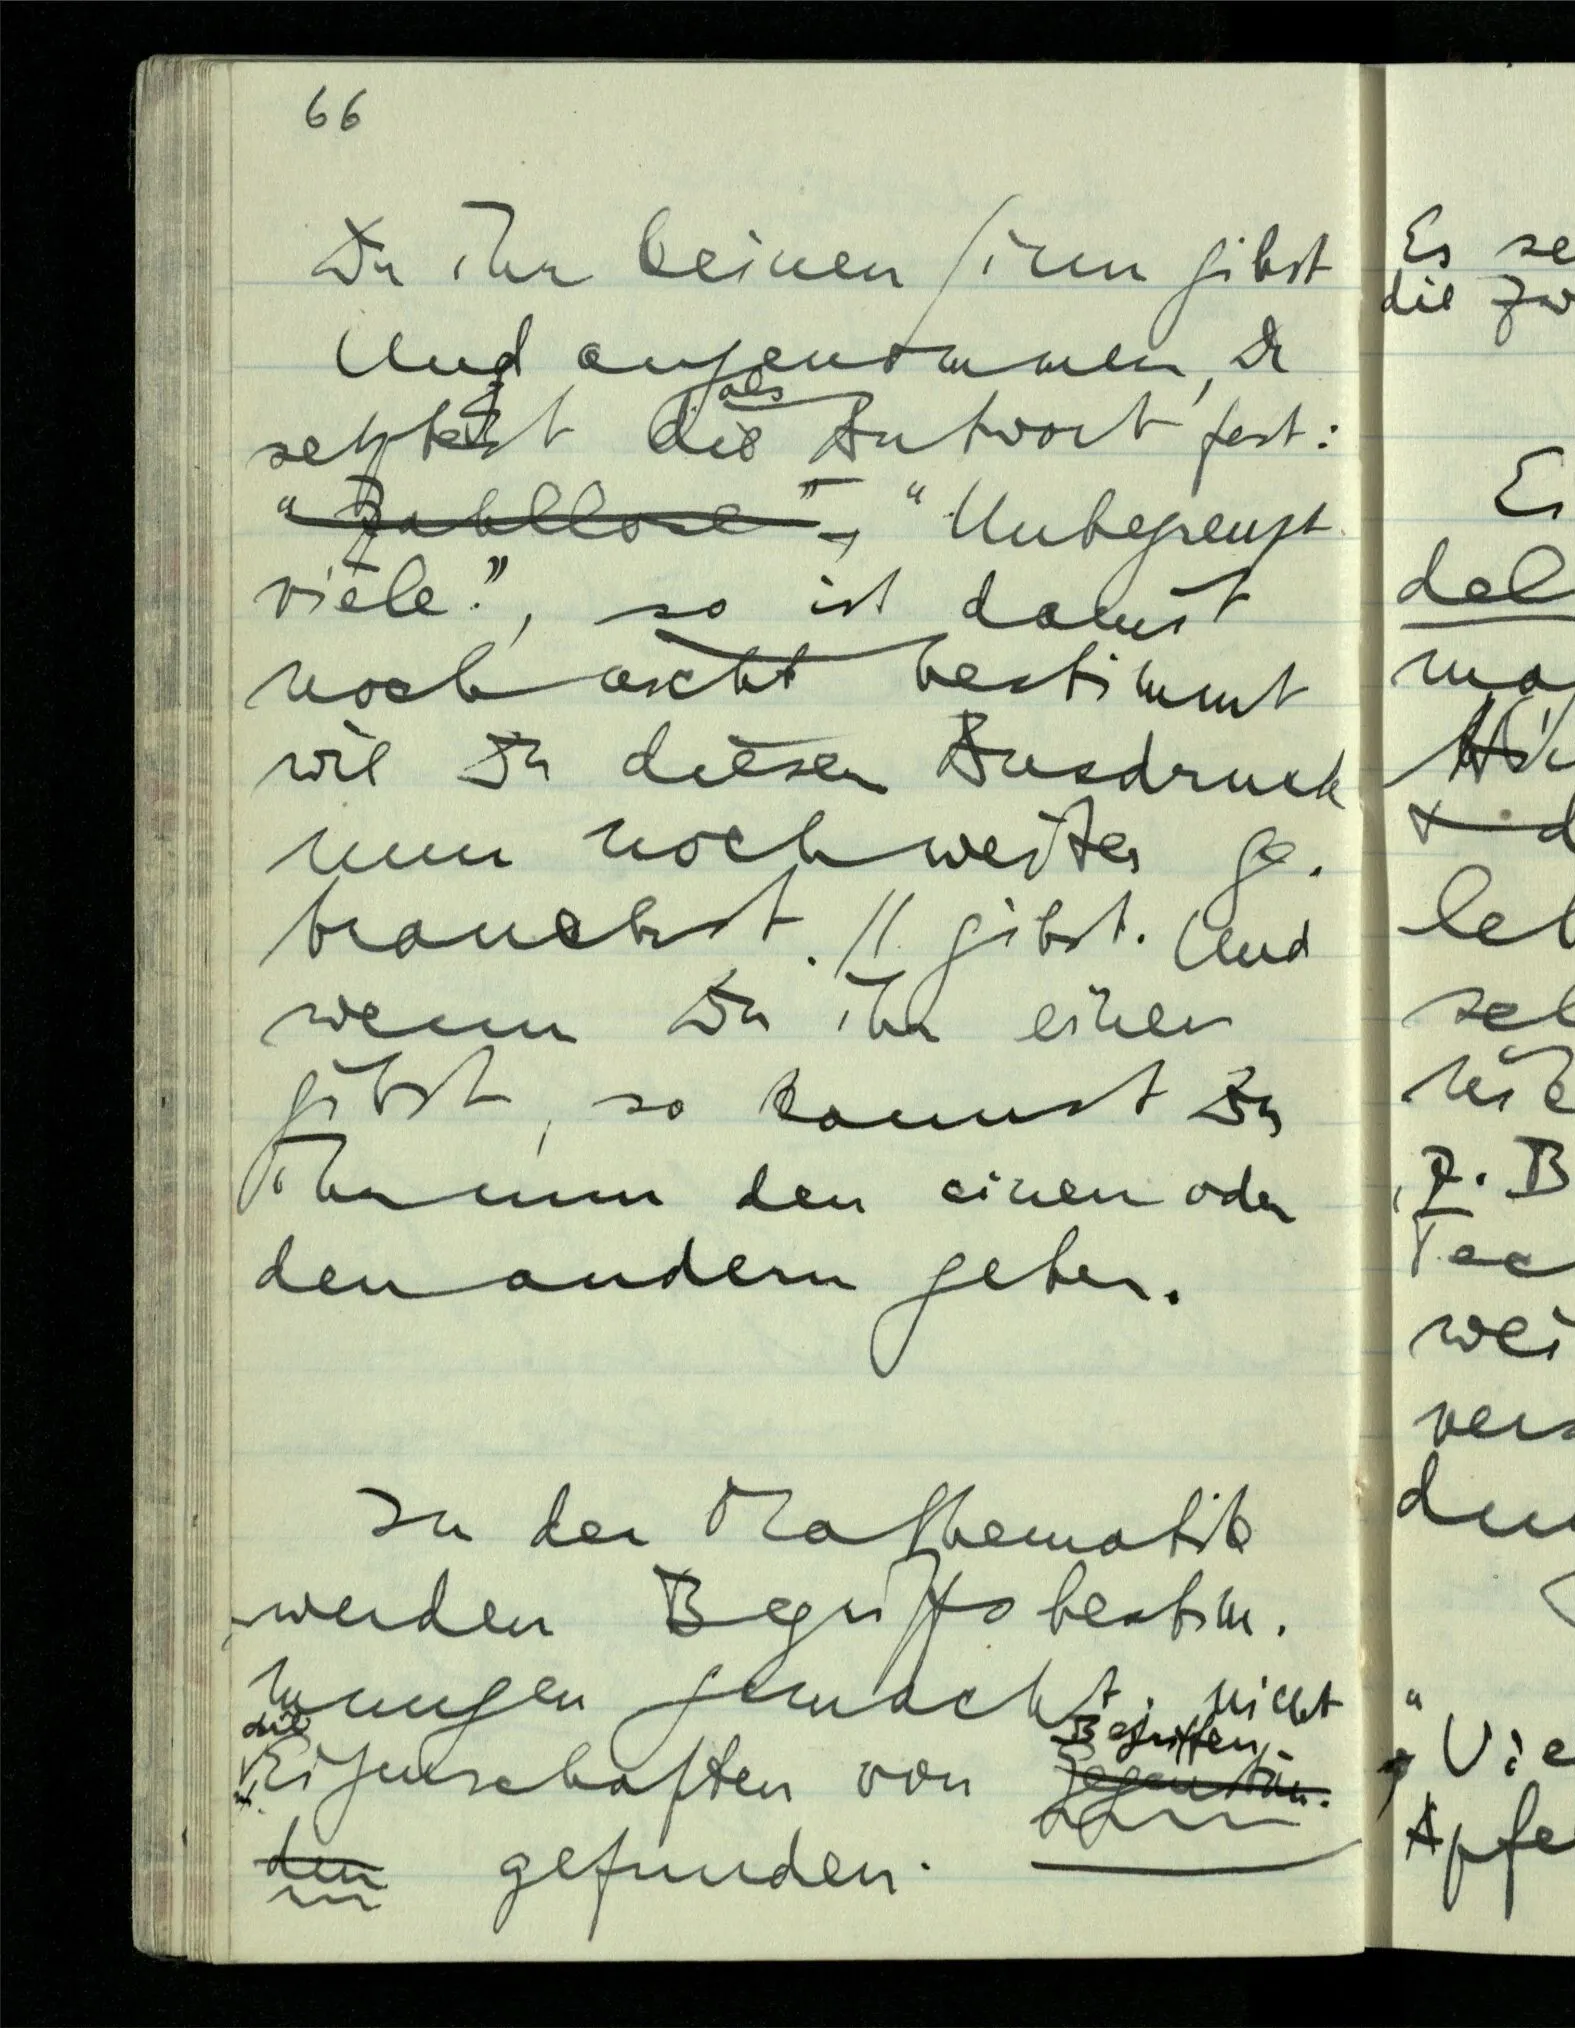 66
Du ihr keinen Sinn gibst
Und angenommen, Du
setztest die als Antwort fest:
"Zahllose", "Unbegrenzt
viele.", so ist damit
noch nicht bestimmt
wie Du diesen Ausdruck
nun noch weiter ge-
brauchst. // gibst. Und
wenn Du ihr einen
gibst, so kannst Du
ihr nun den einen oder
den andern geben.
In der Mathematik
werden Begriffsbestim-
mungen gemacht; nicht
die Begriffen
Eigenschaften von Gegenstän-
den gefunden.
Es
die
Es
z. B
"Vie
Apfe